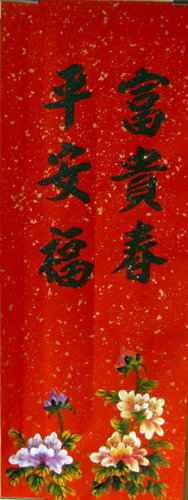 富貴春
平安福